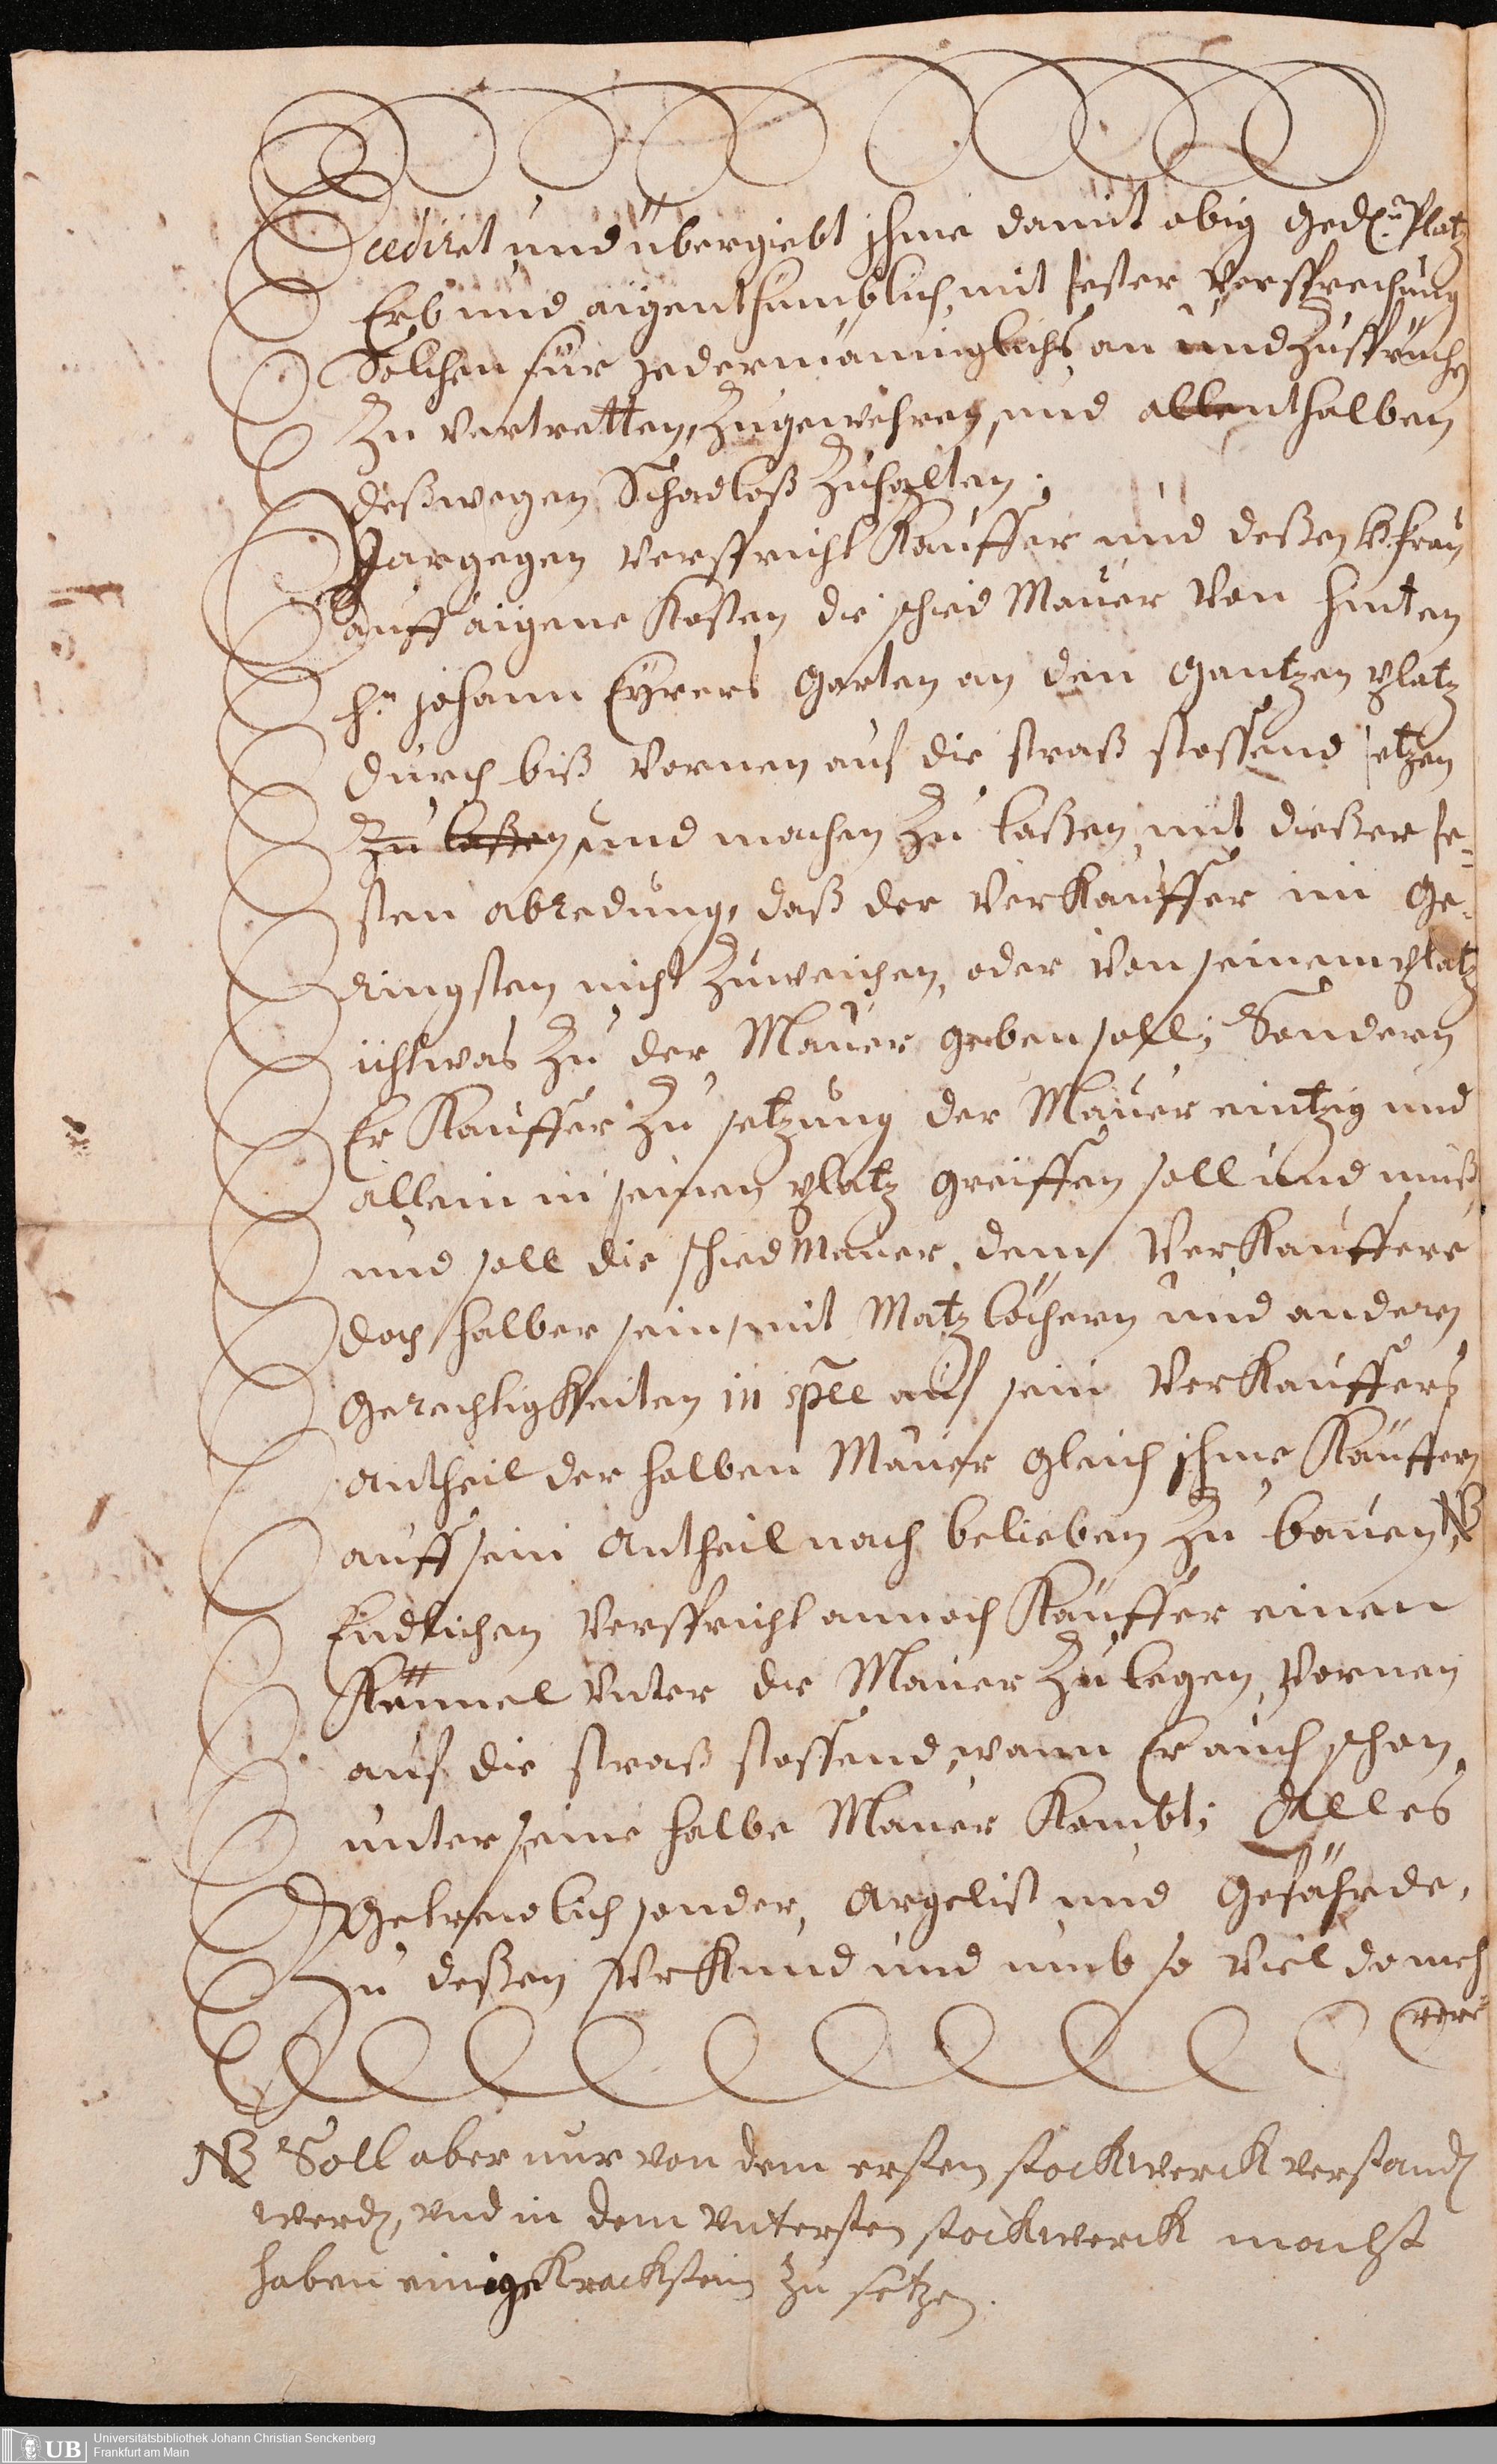 cediret und übergiebt ihme damit obig gedn. Platz
Erb und aigenthumblich, mit fester Versprechung
Solchen für jedermänniglichs an und Zusprüchen
Zu Vertretten, Zugewehren, und allenthalben
deßwegen Schadloß Zuhalten;
Dargegen verspricht Kauffer und deßen h.frau
auff aigene Kosten die schied Mauer Von hinten
Hn. Johann Eyrers Garten an den gantzen platz
durch biß Vornen auf die straß stossend setzen
Zu laßen, und machen Zu laßen, mit dießer fe=
sten abredung, daß der Verkauffer im ge=
ringsten nicht Zuweichen, oder Von seinem platz
ichtwas Zu der Mauer geben soll; Sondern
Er Kauffer Zu setzung der Mauer eintzig und
allein in seinen platz greiffen soll und muß
und soll die schied Mauer, dem Verkauffere
doch halber sein, mit Matzlöchern und andern
Gerechtigkeiten in spēe auf sein Verkauffers
antheil der halben Mauer gleich ihme Käuffern
auff sein antheil nach belieben Zu bauen NB
Endlichen Verspricht annoch Käuffer einen
Kännel Unter die Mauer Zu legen, Vornen
auf die straß stossend, wann Er auch schon
unter seine halbe Mauer Kombt; Alles
Getreulich sonder, Argelist und Gefährde,
Zu deßen Uhrkund und umb so Viel do meh
rere
NB Soll aber nur von dem ersten stockwerck verstanden
werden, und in dem Untersten stockwerck macht
haben einige Krackstein zu setzen.
Universitätsbibliothek Johann Christian Senckenberg
Frankfurt am Main
UB